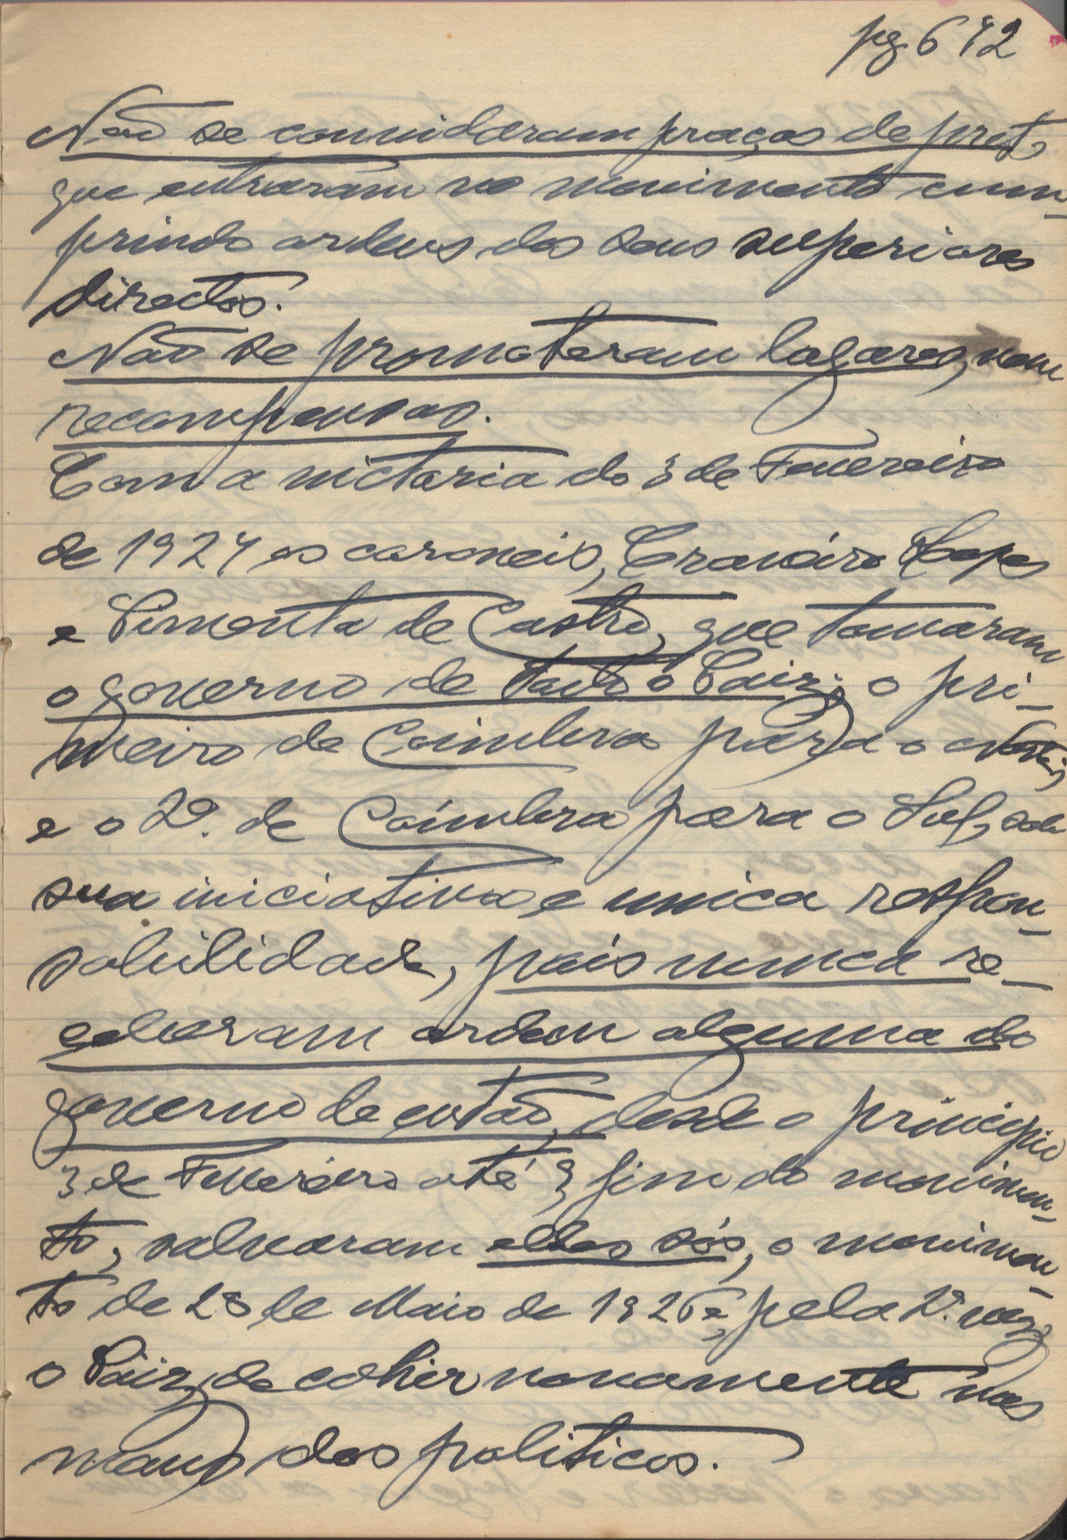 pg 642
Não se convidaram praças de pret,
que entraram no movimento cum-
prindo ordens dos seus superiores
directos.
Não se prometeram lugares, nem
recompensas.
Com a victoria do 3 de Fevereiro
de 1927 os coroneis, Craveiro Lopes
e Pimenta de Castro, que tomaram
o governo de todo o Paiz; o pri-
meiro de Coimbra para o Norte,
e o 2º. de Coímbra para o Sul, sob
sua iniciativa e unica respon-
sabilidade, pois nunca re-
ceberam ordem alguma do
governo de então, desde o principio
3 de Fevereiro até 9 fim do movimen-
to, salvaram elles sós, o movimen-
to de 28 de Maio de 1926 e, pela 2ª. vez,
o Paiz, de cahir novamente nas
mãos dos politicos.